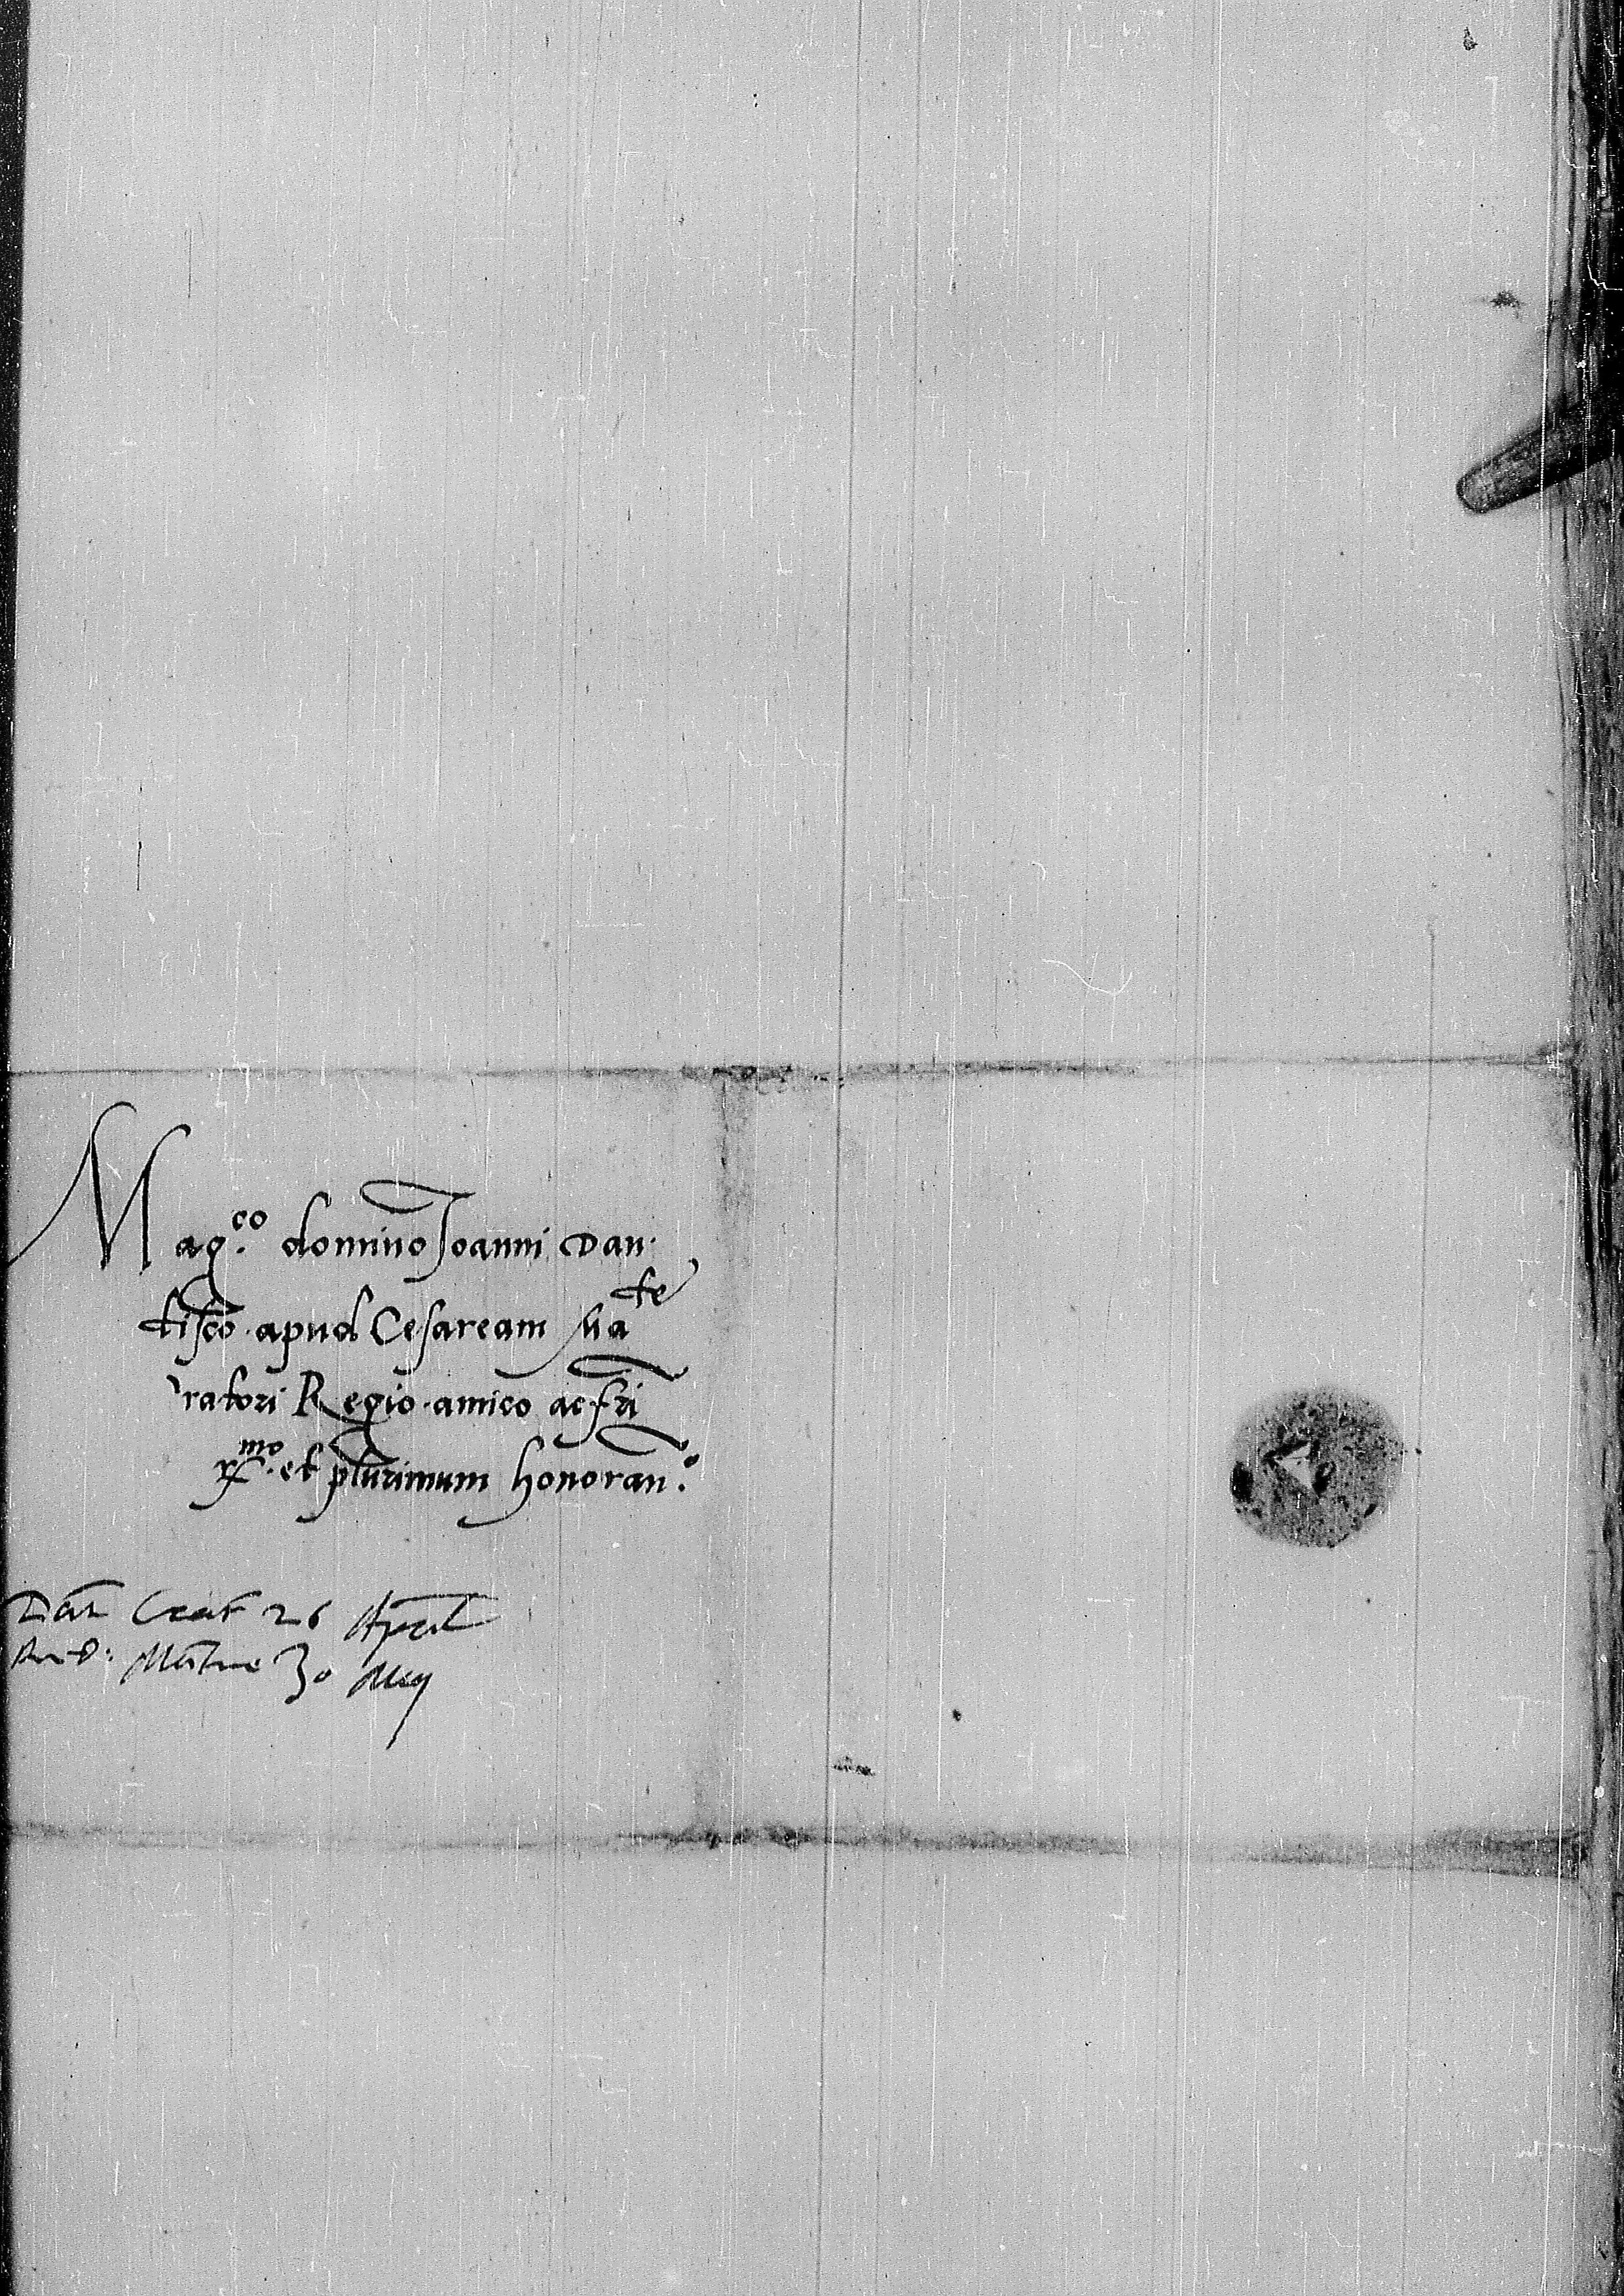 Mag.co domino Joanni Dan
tisco apud Cesaream Ma.te
ratori Regio amico ac fri
xmo. et plurimum honoran.o
Dat Crac 26 April
30 May